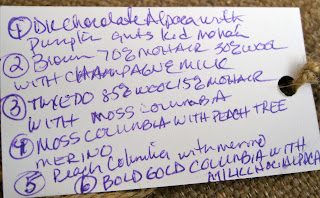 ① DK Chocolate Alpaca with
Purple guts kid mohair
② Brown 70% MOHAIR 30% WOOL
WITH CHAMPAGNE MILK
③ TUXEDO 85% WOOL 15% MOHAIR
WITH MOSS COLUMBIA
④ MOSS COLUMBIA WITH PEACH TREE
MERINO
⑤ Peach Columbia with merino
⑥ BOLD GOLD COLUMBIA WITH
ALPACA